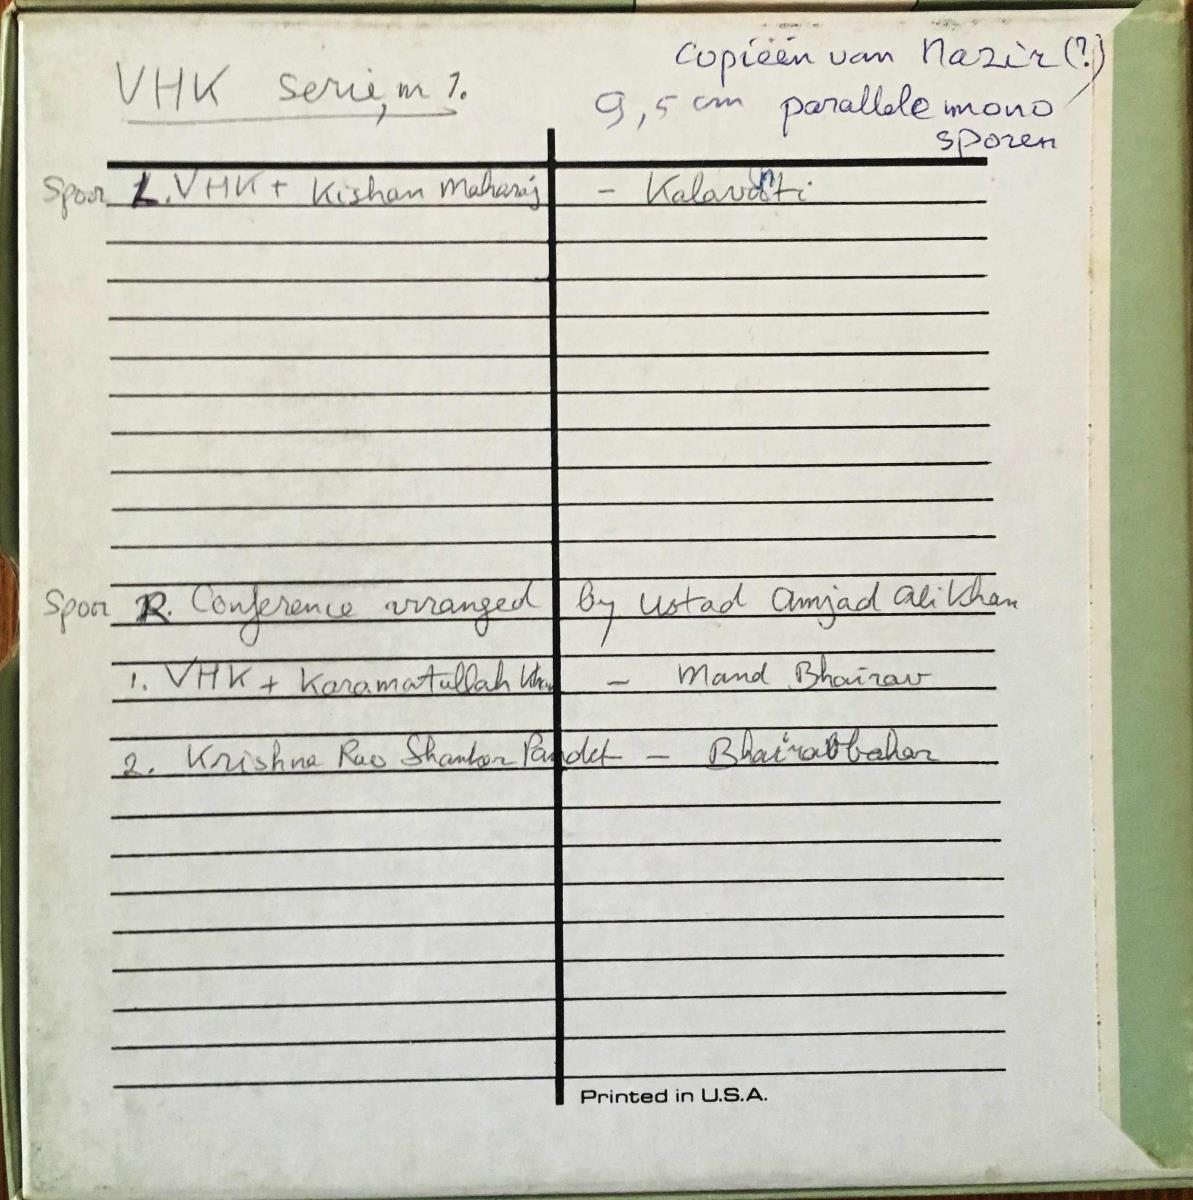 VHK serie, nr 1.
Copieën van Nazir (?)
9,5 cm parallele mono
sporen
Spoor L. VHK + Kishan Maharaj - Kalavati
Spoor R. Conference arranged by Ustad Amjad Ali Khan
1. VHK + Karamatullah Khan - Mand Bhairav
2. Krishna Rao Shankar Pandit - Bhairav bahar
Printed in U.S.A.